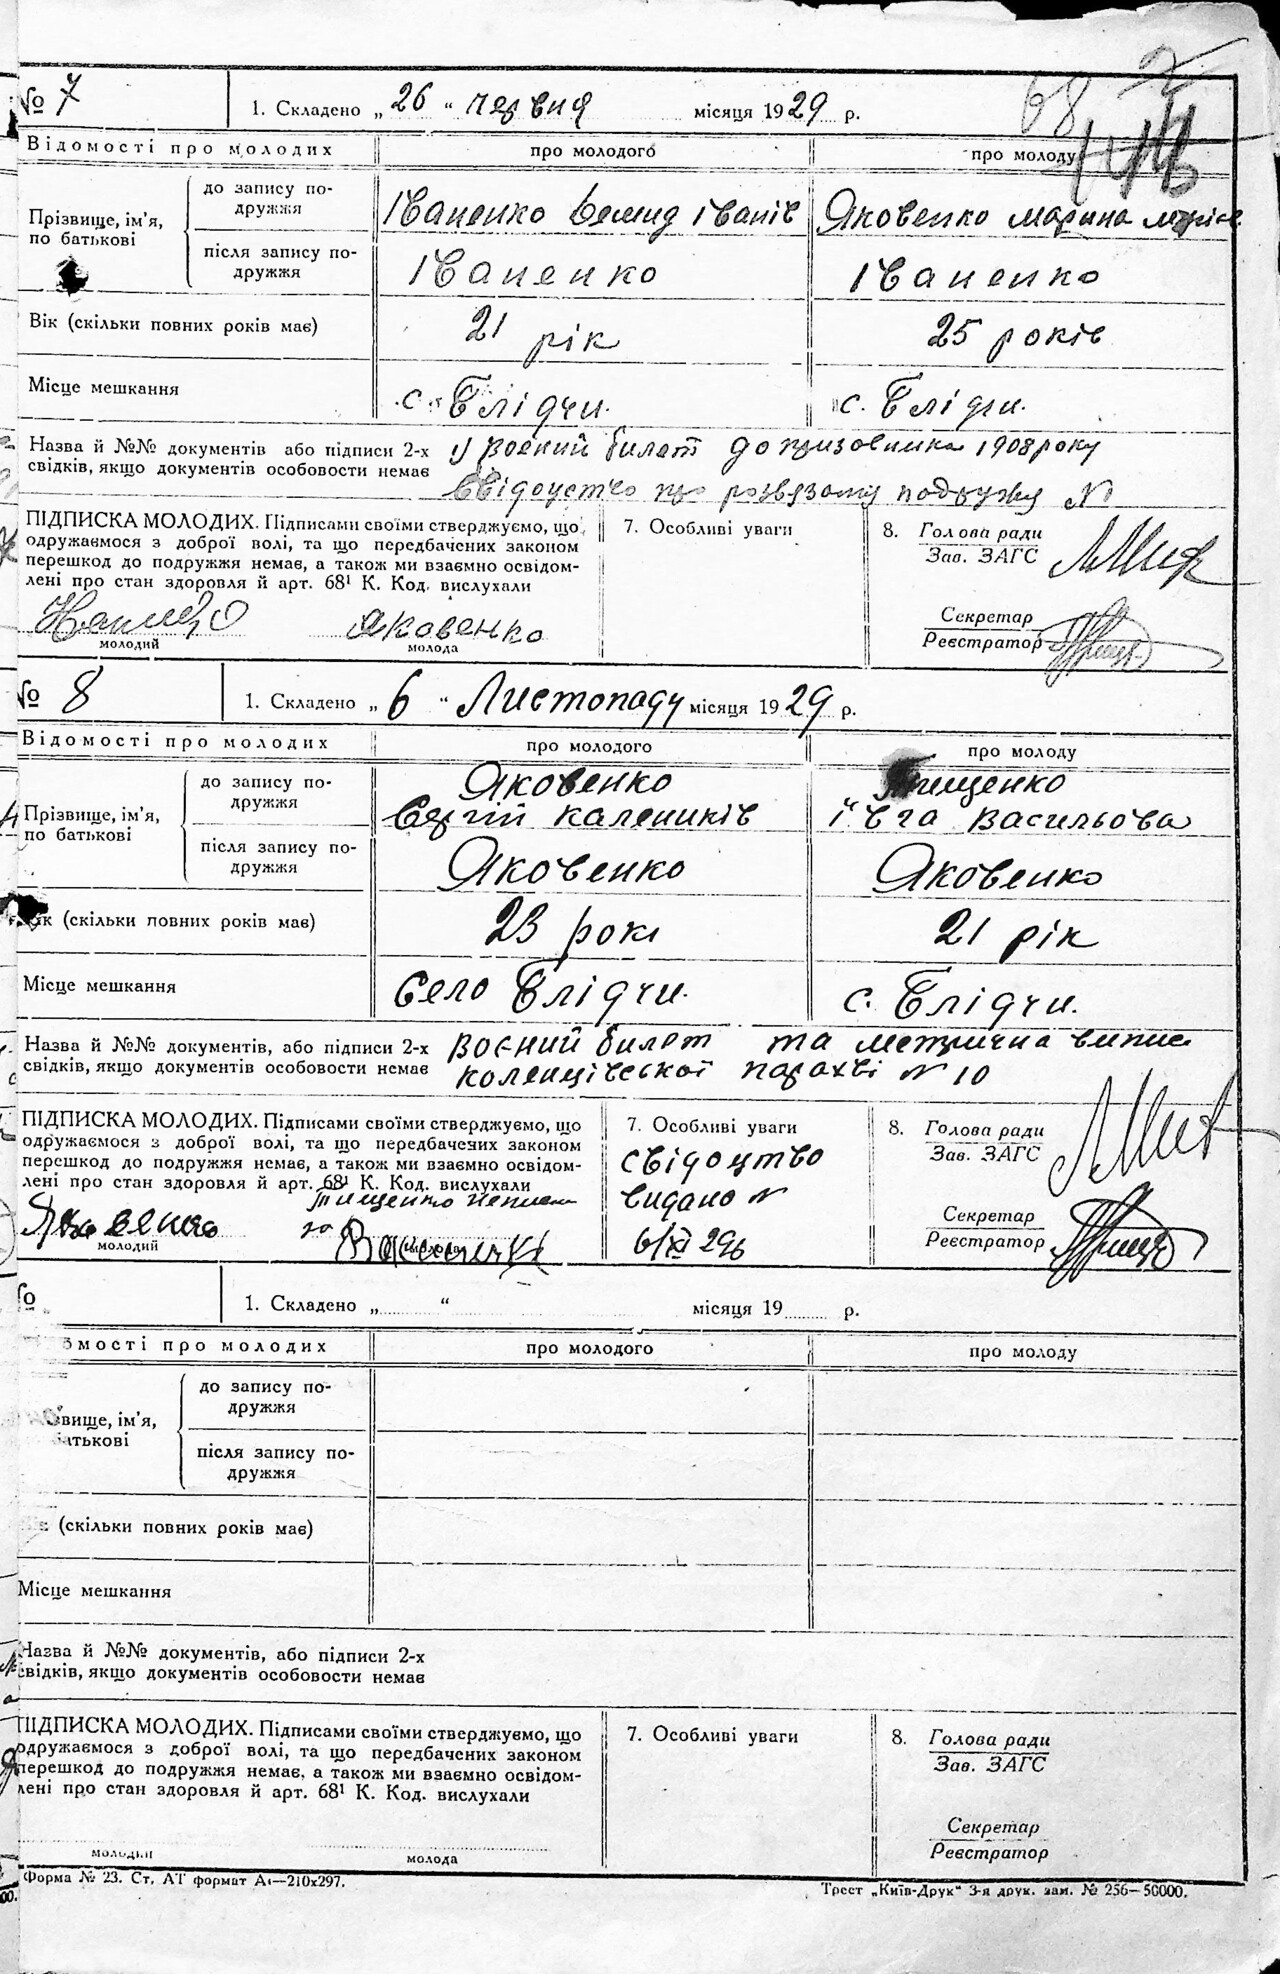 68
№ 7 1. Складено „ 26 “ червня місяця 1929 р.
Відомості про молодих про молодого про молоду
Прізвище, ім'я, по батькові
до запису подружжя Іваненко Іванів Яковенко Марина
після запису подружжя Іваненко Іваненко
Вік (скільки повних років має) 21 рік 25 років
Місце мешкання с. Блідчи. с. Блідчи.
Назва й №№ документів або підписи 2-х 1) воєний билет допризовника 1908 року
свідків, якщо документів особовости немає свідоцтво про розвязому подружжу №
ПІДПИСКА МОЛОДИХ. Підписами своїми стверджуємо, що
одружаємося з доброї волі, та що передбачених законом
перешкод до подружжя немає, а також ми взаємно освідом-
лені про стан здоровля й арт. 68¹ К. Код. вислухали
7. Особливі уваги
8. Голова ради
Зав. ЗАГС
Секретар
Реєстратор
Яковенко
молодий молода
№ 8 1. Складено „ 6 “ Листопаду місяця 1929 р.
Відомості про молодих про молодого про молоду
Прізвище, ім'я, по батькові
до запису подружжя Яковенко Сергій Калеників Тищенко Івга Васильова
після запису подружжя Яковенко Яковенко
Вік (скільки повних років має) 23 рокі 21 рік
Місце мешкання Село Блідчи. с. Блідчи.
Назва й №№ документів, або підписи 2-х воєний билет та метрична випис
свідків, якщо документів особовости немає коленцівської парахві № 10
ПІДПИСКА МОЛОДИХ. Підписами своїми стверджуємо, що
одружаємося з доброї волі, та що передбачених законом
перешкод до подружжя немає, а також ми взаємно освідом-
лені про стан здоровля й арт. 68¹ К. Код. вислухали
7. Особливі уваги
свідоцтво
видано №
6/XI 29р
8. Голова ради
Зав. ЗАГС
Секретар
Реєстратор
Тищенко
Яковенко за
молодий
№ 1. Складено „ “ місяця 19 р.
омості про молодих про молодого про молоду
звище, ім'я, атькові
до запису подружжя
після запису подружжя
(скільки повних років має)
Місце мешкання
Назва й №№ документів, або підписи 2-х
свідків, якщо документів особовости немає
ПІДПИСКА МОЛОДИХ. Підписами своїми стверджуємо, що
одружаємося з доброї волі, та що передбачених законом
перешкод до подружжя немає, а також ми взаємно освідом-
лені про стан здоровля й арт. 68¹ К. Код. вислухали
7. Особливі уваги
8. Голова ради
Зав. ЗАГС
Секретар
Реєстратор
молодий молода
Форма № 23. Ст. АТ формат А₄—210х297.
Трест „Київ-Друк“ 3-я друк. зам. № 256—50000.